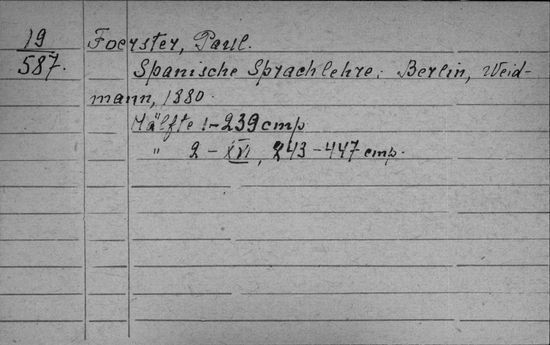 19 Foerster, Paul.
587. Spanische Sprachlehre. Berlin, Weid-
mann, 1880.
Hälfte 1-239 cmp
" 2 - XVI, 243-447 cmp.